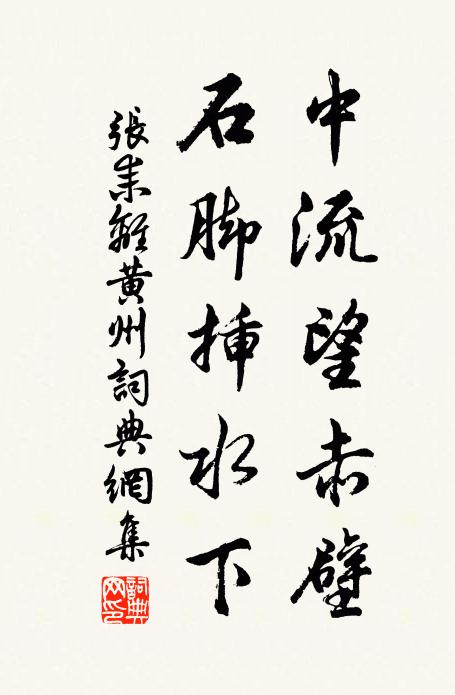 中流望赤壁
石脚插水下
張耒離黄州詞典網集
詞典網印